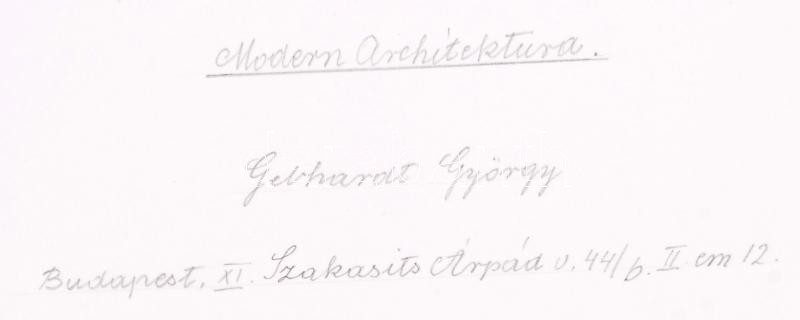 Modern Architektura.
Gebhardt György
Budapest, XI. Szakasits Árpád u. 44/b. II em 12.